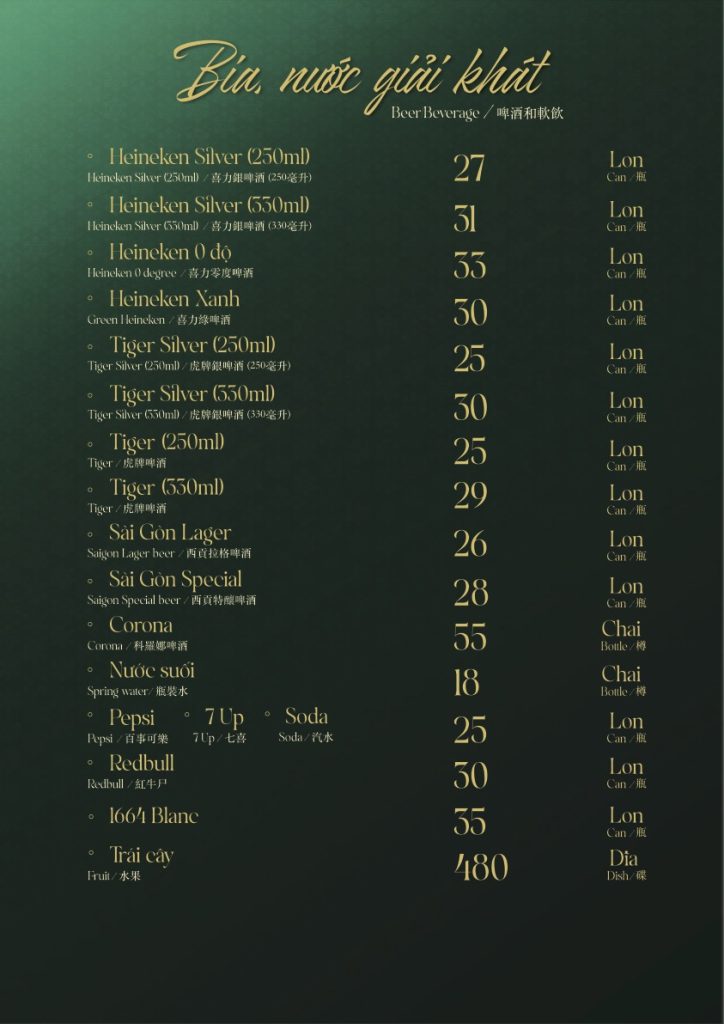 Bia, nước giải khát
Beer Beverage / 啤酒和軟飲
Heineken Silver (250ml) 27 Lon
Heineken Silver (250ml) / 喜力銀啤酒 (250毫升) Can / 瓶
Heineken Silver (330ml) 31 Lon
Heineken Silver (330ml) / 喜力銀啤酒 (330毫升) Can / 瓶
Heineken 0 độ 33 Lon
Heineken 0 degree / 喜力零度啤酒 Can / 瓶
Heineken Xanh 30 Lon
Green Heineken / 喜力綠啤酒 Can / 瓶
Tiger Silver (250ml) 25 Lon
Tiger Silver (250ml) / 虎牌銀啤酒 (250毫升) Can / 瓶
Tiger Silver (330ml) 30 Lon
Tiger Silver (330ml) / 虎牌銀啤酒 (330毫升) Can / 瓶
Tiger (250ml) 25 Lon
Tiger / 虎牌啤酒 Can / 瓶
Tiger (330ml) 29 Lon
Tiger / 虎牌啤酒 Can / 瓶
Sài Gòn Lager 26 Lon
Saigon Lager beer / 西貢拉格啤酒 Can / 瓶
Sài Gòn Special 28 Lon
Saigon Special beer / 西貢特釀啤酒 Can / 瓶
Corona 55 Chai
Corona / 科羅娜啤酒 Bottle / 樽
Nước suối 18 Chai
Spring water / 瓶裝水 Bottle / 樽
Pepsi 7 Up Soda 25 Lon
Pepsi / 百事可樂 7 Up / 七喜 Soda / 汽水 Can / 瓶
Redbull 30 Lon
Redbull / 紅牛尸 Can / 瓶
1664 Blanc 35 Lon
Can / 瓶
Trái cây 480 Dĩa
Fruit / 水果 Dish / 碟